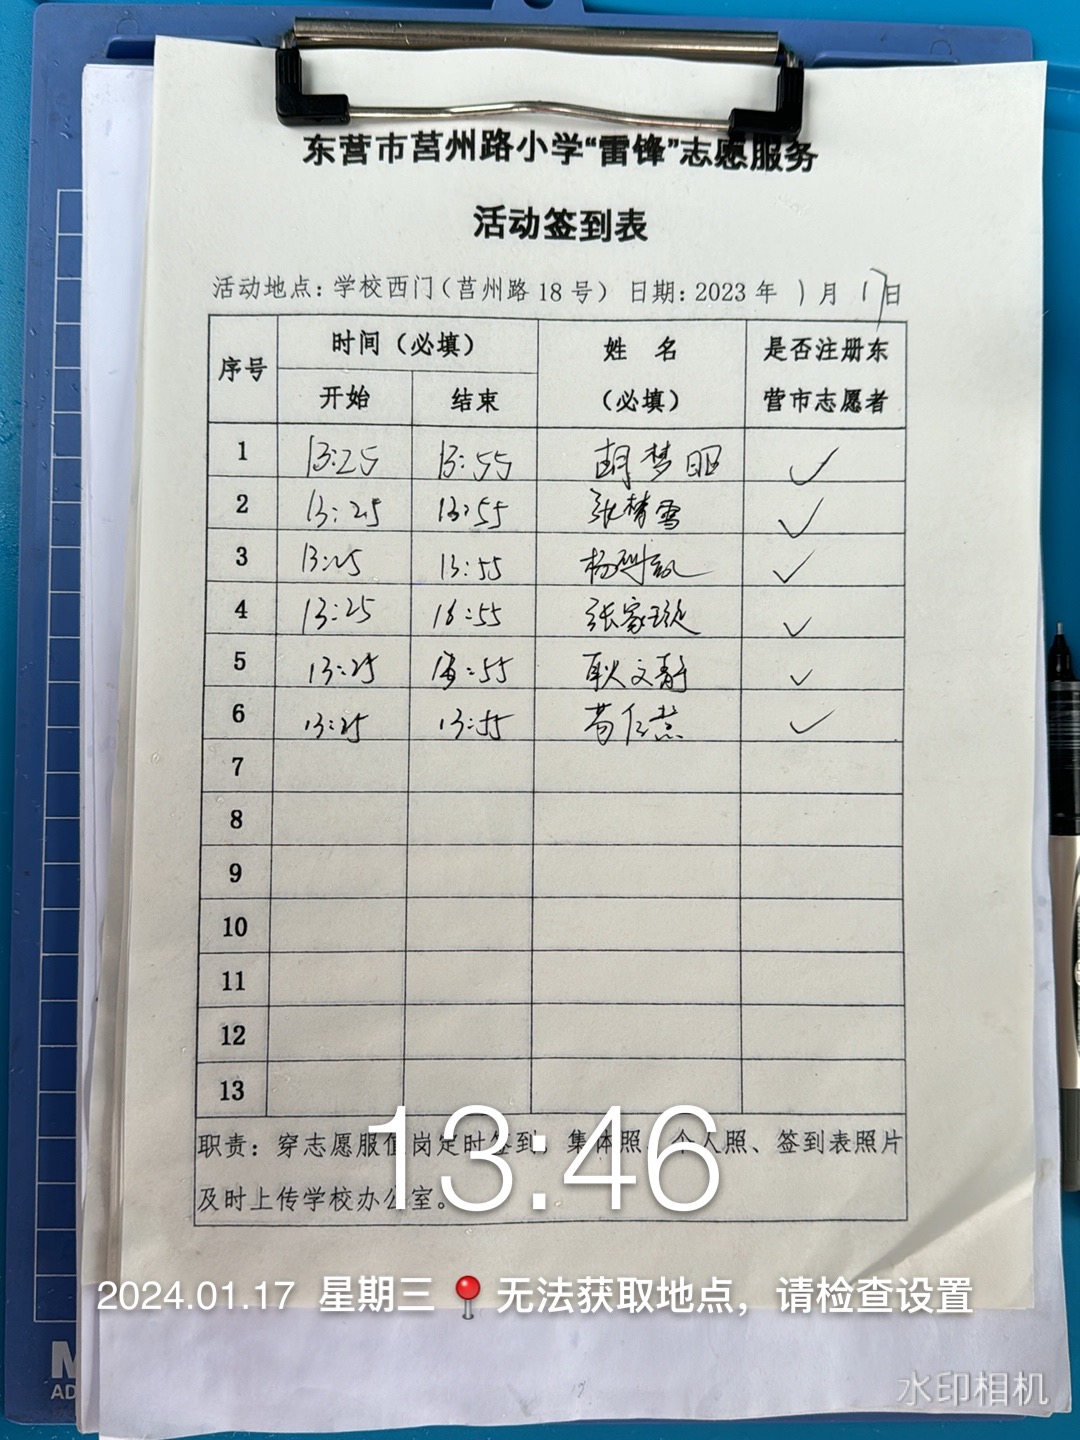 东营市莒州路小学“雷锋”志愿服务
活动签到表
活动地点：学校西门（莒州路 18 号） 日期：2023 年 1 月 17 日
序号 时间（必填） 姓 名 （必填） 是否注册东营市志愿者
开始 结束
1 13:25 13:55 胡梦昭 ✓
2 13:25 13:55 张梦雪 ✓
3 13:25 13:55 杨 ✓
4 13:25 13:55 张家璇 ✓
5 13:25 13:55 耿文静 ✓
6 13:25 13:55 ✓
7
8
9
10
11
12
13
职责：穿志愿服值岗定时签到，集体照、个人照、签到表照片
及时上传学校办公室。
13:46
2024.01.17 星期三 📍无法获取地点，请检查设置
水印相机
M
AD